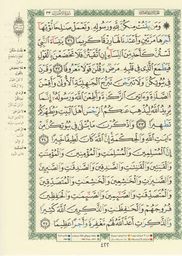 ۞ وَمَن يَقْنُتْ مِنكُنَّ لِلَّهِ وَرَسُولِهِۦ وَتَعْمَلْ صَٰلِحًا نُّؤْتِهَآ
أَجْرَهَا مَرَّتَيْنِ وَأَعْتَدْنَا لَهَا رِزْقًا كَرِيمًا ٣١ يَٰنِسَآءَ ٱلنَّبِىِّ
لَسْتُنَّ كَأَحَدٍ مِّنَ ٱلنِّسَآءِ إِنِ ٱتَّقَيْتُنَّ فَلَا تَخْضَعْنَ بِٱلْقَوْلِ
فَيَطْمَعَ ٱلَّذِى فِى قَلْبِهِۦ مَرَضٌ وَقُلْنَ قَوْلًا مَّعْرُوفًا ٣٢ وَقَرْنَ
فِى بُيُوتِكُنَّ وَلَا تَبَرَّجْنَ تَبَرُّجَ ٱلْجَٰهِلِيَّةِ ٱلْأُولَىٰ وَأَقِمْنَ
ٱلصَّلَوٰةَ وَءَاتِينَ ٱلزَّكَوٰةَ وَأَطِعْنَ ٱللَّهَ وَرَسُولَهُۥٓ إِنَّمَا
يُرِيدُ ٱللَّهُ لِيُذْهِبَ عَنكُمُ ٱلرِّجْسَ أَهْلَ ٱلْبَيْتِ
وَيُطَهِّرَكُمْ تَطْهِيرًا ٣٣ وَٱذْكُرْنَ مَا يُتْلَىٰ فِى بُيُوتِكُنَّ
مِنْ ءَايَٰتِ ٱللَّهِ وَٱلْحِكْمَةِ إِنَّ ٱللَّهَ كَانَ لَطِيفًا خَبِيرًا ٣٤
إِنَّ ٱلْمُسْلِمِينَ وَٱلْمُسْلِمَٰتِ وَٱلْمُؤْمِنِينَ وَٱلْمُؤْمِنَٰتِ
وَٱلْقَٰنِتِينَ وَٱلْقَٰنِتَٰتِ وَٱلصَّٰدِقِينَ وَٱلصَّٰدِقَٰتِ وَٱلصَّٰبِرِينَ
وَٱلصَّٰبِرَٰتِ وَٱلْخَٰشِعِينَ وَٱلْخَٰشِعَٰتِ وَٱلْمُتَصَدِّقِينَ
وَٱلْمُتَصَدِّقَٰتِ وَٱلصَّٰٓئِمِينَ وَٱلصَّٰٓئِمَٰتِ وَٱلْحَٰفِظِينَ
فُرُوجَهُمْ وَٱلْحَٰفِظَٰتِ وَٱلذَّٰكِرِينَ ٱللَّهَ كَثِيرًا
وَٱلذَّٰكِرَٰتِ أَعَدَّ ٱللَّهُ لَهُم مَّغْفِرَةً وَأَجْرًا عَظِيمًا ٣٥
٤٢٢